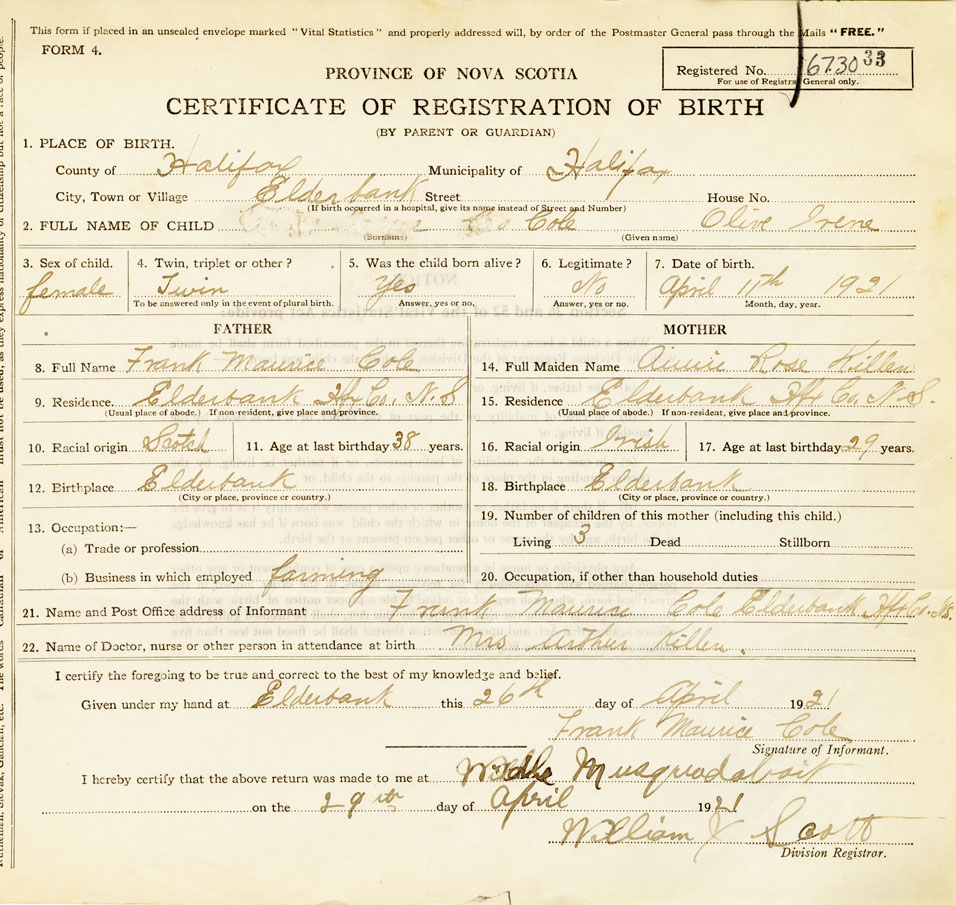 This form if placed in an unsealed envelope marked "Vital Statistics" and properly addressed will, by order of the Postmaster General pass through the Mails "FREE."
FORM 4.
Registered No. 6730 33
For use of Registrar General only.
PROVINCE OF NOVA SCOTIA
CERTIFICATE OF REGISTRATION OF BIRTH
(BY PARENT OR GUARDIAN)
1. PLACE OF BIRTH.
County of Halifax Municipality of Halifax
City, Town or Village Elderbank Street House No.
(If birth occurred in a hospital, give its name instead of Street and Number)
2. FULL NAME OF CHILD Cole Olive Irene
(Surname) (Given name)
3. Sex of child. 4. Twin, triplet or other? 5. Was the child born alive? 6. Legitimate? 7. Date of birth.
female Twin Yes No April 11th 1921
To be answered only in the event of plural birth. Answer, yes or no. Answer, yes or no. Month, day, year.
FATHER MOTHER
8. Full Name Frank Maurice Cole 14. Full Maiden Name Annie Rose Killen
9. Residence Elderbank Hfx Co. N.S 15. Residence Elderbank Hfx Co. N.S.
(Usual place of abode.) If non-resident, give place and province. (Usual place of abode.) If non-resident, give place and province.
10. Racial origin Scotch 11. Age at last birthday 38 years. 16. Racial origin Irish 17. Age at last birthday 29 years.
12. Birthplace Elderbank 18. Birthplace Elderbank
(City or place, province or country.) (City or place, province or country.)
13. Occupation:— 19. Number of children of this mother (including this child.)
(a) Trade or profession Living 3 Dead Stillborn
(b) Business in which employed farming 20. Occupation, if other than household duties
21. Name and Post Office address of Informant Frank Maurice Cole Elderbank Hfx Co. N.S.
22. Name of Doctor, nurse or other person in attendance at birth Mrs Arthur Killen.
I certify the foregoing to be true and correct to the best of my knowledge and belief.
Given under my hand at Elderbank this 26th day of April 1921
Frank Maurice Cole
Signature of Informant.
I hereby certify that the above return was made to me at Middle Musquodoboit
on the 29th day of April 1921
William J Scott
Division Registrar.